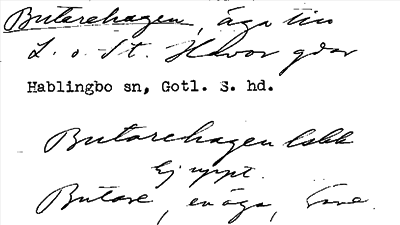 Butarehagen, äga till
L. o. St. Havor gdar
Hablingbo sn, Gotl. S. hd.
Butarehagen lskk
Ej uppt.
Butare, en äga,